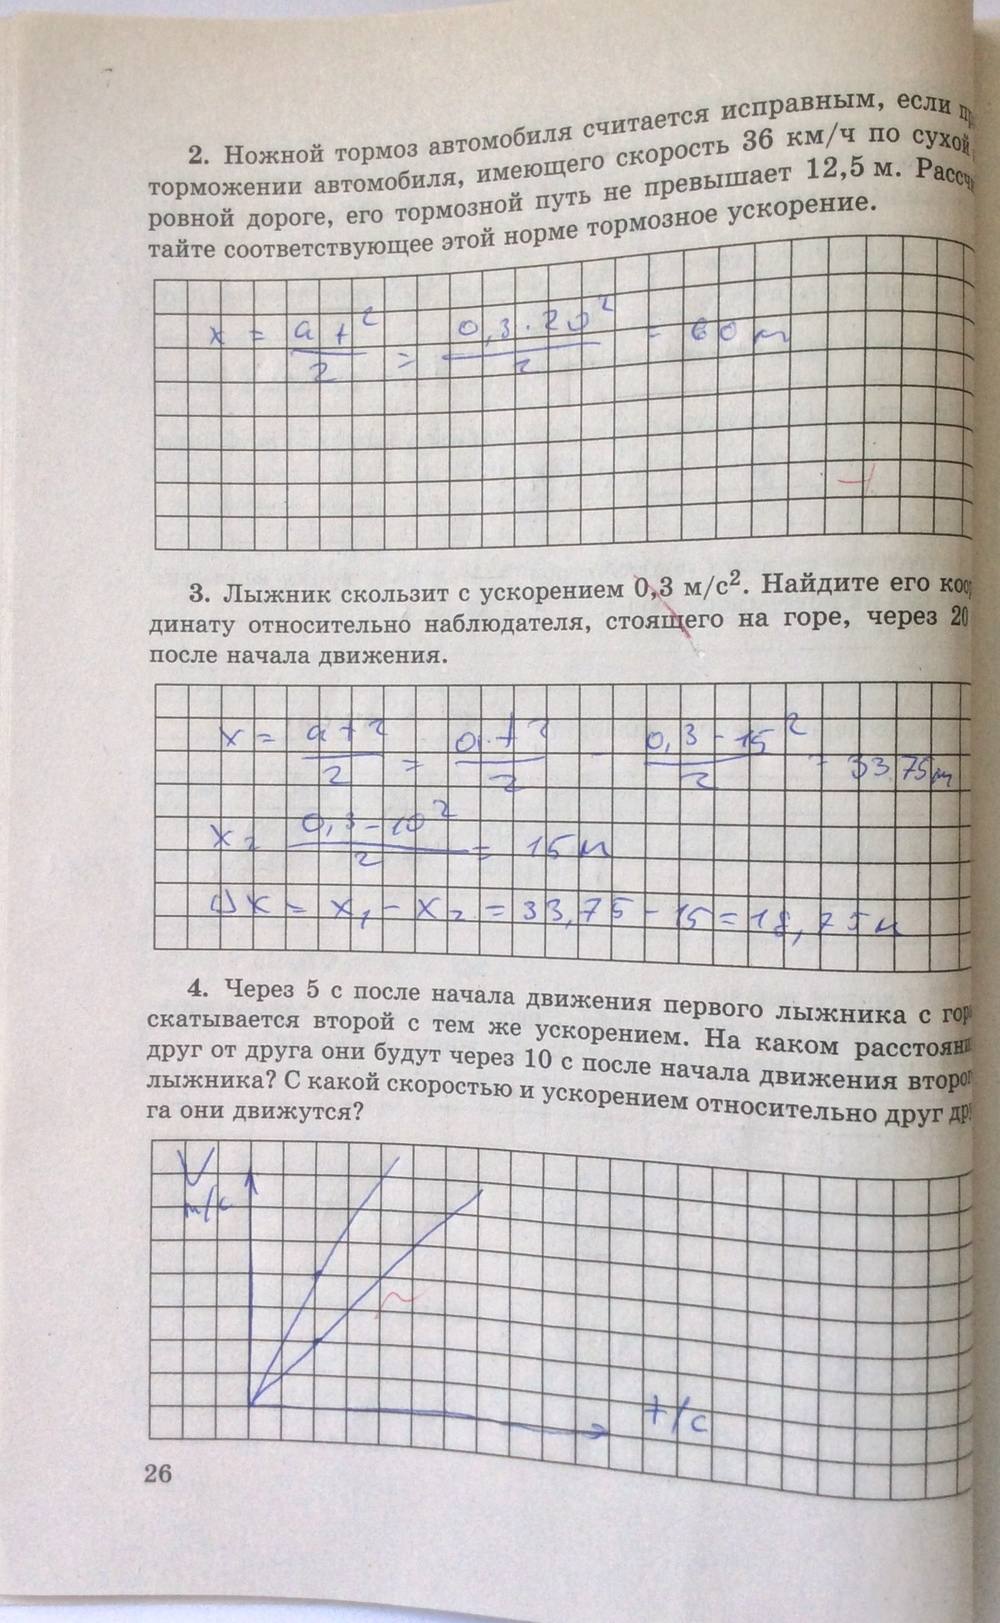 2. Ножной тормоз автомобиля считается исправным, если
торможении автомобиля, имеющего скорость 36 км/ч по сухой
ровной дороге, его тормозной путь не превышает 12,5 м. Рассчи
тайте соответствующее этой норме тормозное ускорение.
x = at²/2 = 0,3·20²/2 = 60 м
3. Лыжник скользит с ускорением 0,3 м/с². Найдите его коор
динату относительно наблюдателя, стоящего на горе, через 20
после начала движения.
x = at²/2 = a·t²/2 - 0,3-15²/2 = 33,75м
x₂ 0,3-10²/2 = 15м
Δx = x₁ - x₂ = 33,75 - 15 = 18,75м
4. Через 5 с после начала движения первого лыжника с гор
скатывается второй с тем же ускорением. На каком расстояни
друг от друга они будут через 10 с после начала движения второг
лыжника? С какой скоростью и ускорением относительно друг др
га они движутся?
V
м/с
t/с
26